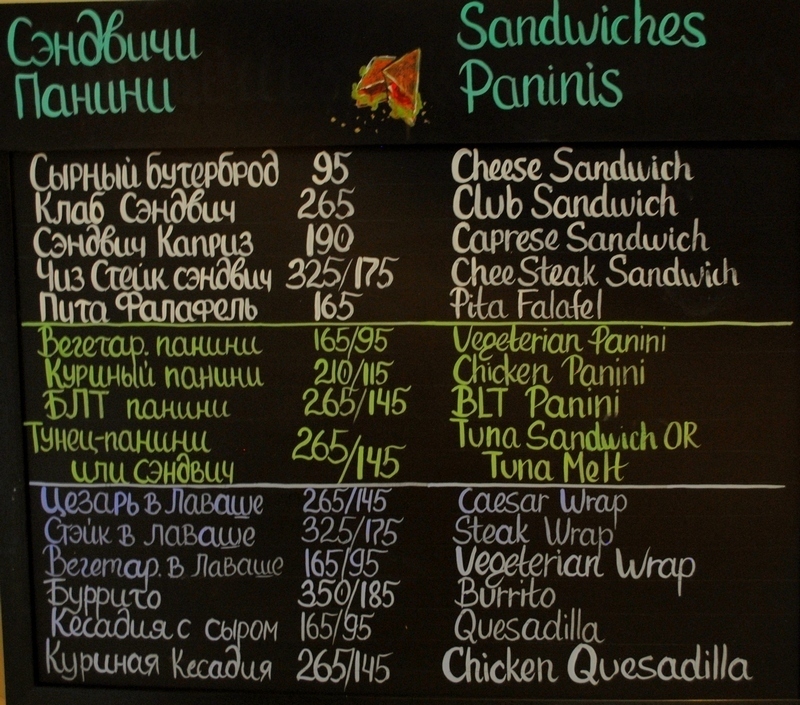 Сэндвичи Sandwiches
Панини Paninis
Сырный бутерброд 95 Cheese Sandwich
Клаб Сэндвич 265 Club Sandwich
Сэндвич Каприз 190 Caprese Sandwich
Чиз Стейк сэндвич 325/175 Chee Steak Sandwich
Пита Фалафель 165 Pita Falafel
Вегетар. панини 165/95 Vegeterian Panini
Куриный панини 210/115 Chicken Panini
БЛТ панини 265/145 BLT Panini
Тунец-панини 265/145 Tuna Sandwich OR
или сэндвич Tuna Melt
Цезарь в Лаваше 265/145 Caesar Wrap
Стэйк в лаваше 325/175 Steak Wrap
Вегетар. в Лаваше 165/95 Vegeterian Wrap
Буррито 350/185 Burrito
Кесадия с сыром 165/95 Quesadilla
Куриная Кесадия 265/145 Chicken Quesadilla